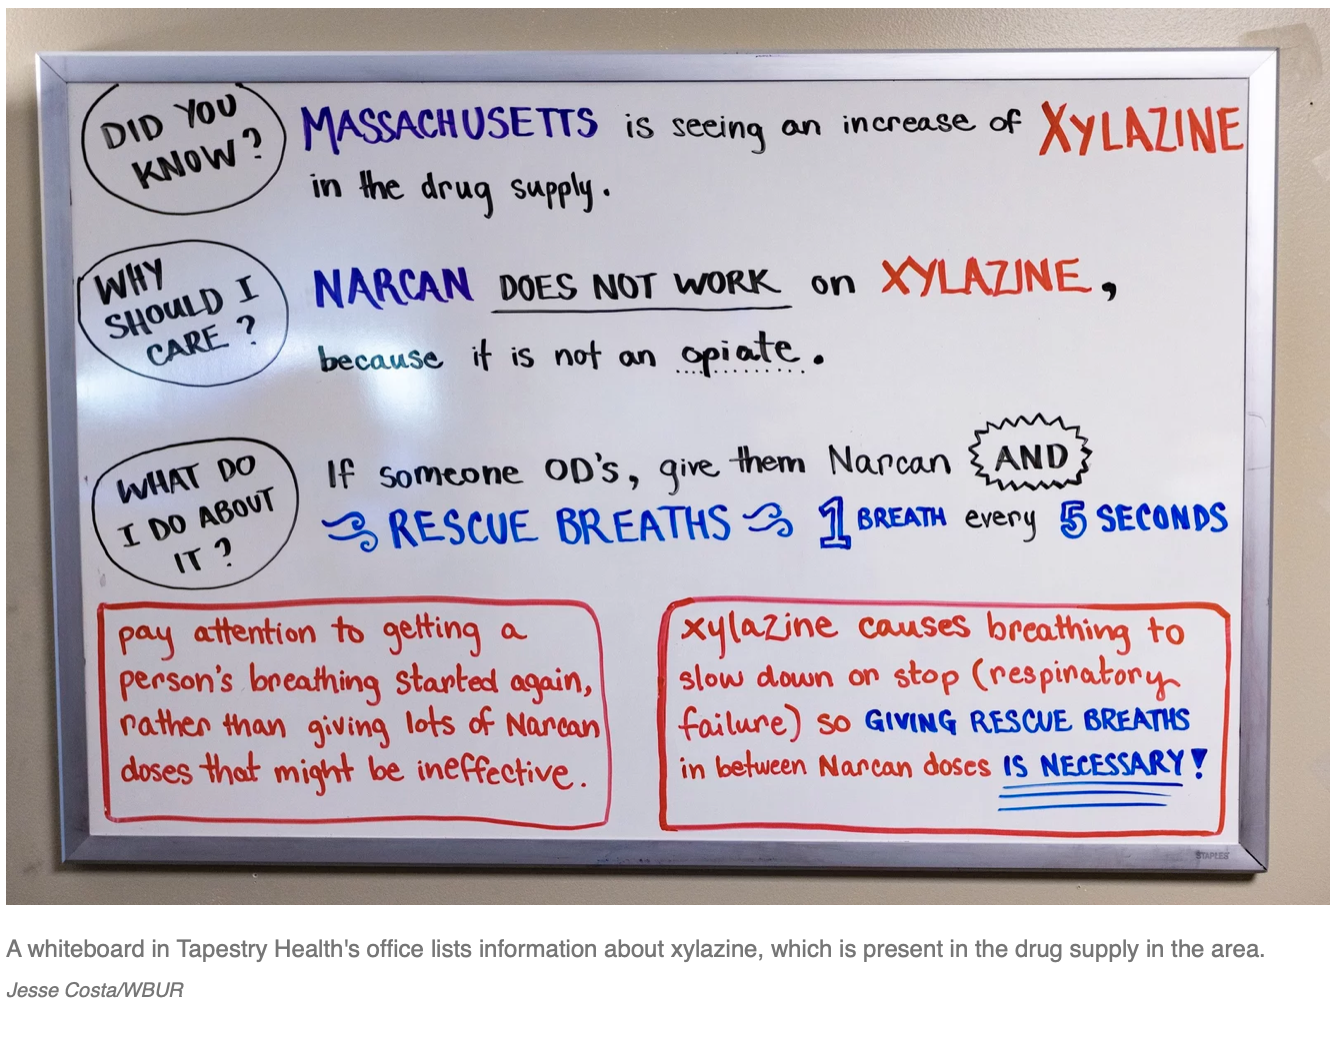 DID YOU
KNOW?
MASSACHUSETTS is seeing an increase of XYLAZINE
in the drug supply.
WHY
SHOULD I
CARE?
NARCAN DOES NOT WORK on XYLAZINE,
because it is not an opiate.
WHAT DO
I DO ABOUT
IT?
If someone OD's, give them Narcan AND
RESCUE BREATHS 1 BREATH every 5 SECONDS
pay attention to getting a
person's breathing started again,
rather than giving lots of Narcan
doses that might be ineffective.
xylazine causes breathing to
slow down or stop (respiratory
failure) so GIVING RESCUE BREATHS
in between Narcan doses IS NECESSARY!
STAPLES
A whiteboard in Tapestry Health's office lists information about xylazine, which is present in the drug supply in the area.
Jesse Costa/WBUR